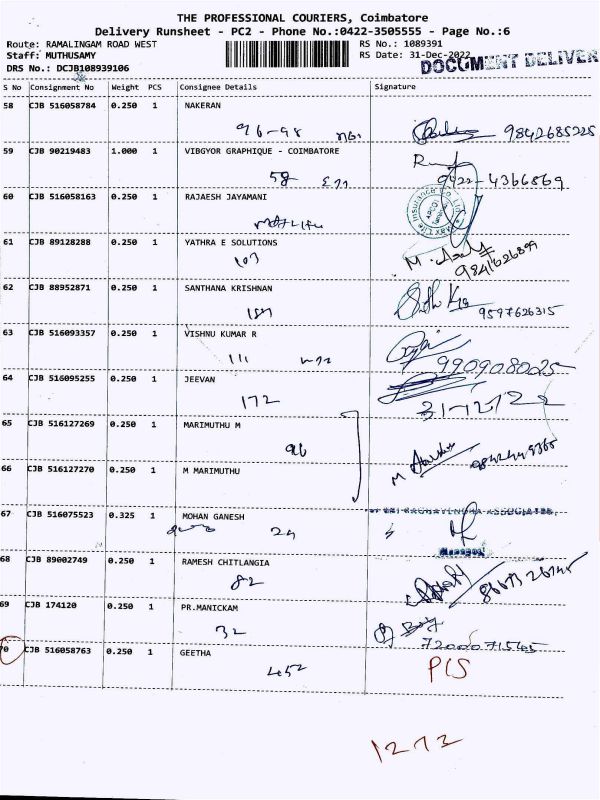 THE PROFESSIONAL COURIERS, Coimbatore
Delivery Runsheet - PC2 - Phone No.:0422-3505555 - Page No.:6
Route: RAMALINGAM ROAD WEST
RS No.: 1089391
Staff: MUTHUSAMY
RS Date: 31-Dec-2022
DOCUMENT DELIVER
DRS No.: DCJB108939106
S No Consignment No Weight PCS Consignee Details Signature
58 CJB 516058784 0.250 1 NAKERAN
96-98 9842685225
59 CJB 90219483 1.000 1 VIBGYOR GRAPHIQUE - COIMBATORE
58 9422-4366869
60 CJB 516058163 0.250 1 RAJAESH JAYAMANI
Max Life Insurance Co Ltd
61 CJB 89128288 0.250 1 YATHRA E SOLUTIONS
103
62 CJB 88952871 0.250 1 SANTHANA KRISHNAN
9597626315
63 CJB 516093357 0.250 1 VISHNU KUMAR R
111 9909080025
64 CJB 516095255 0.250 1 JEEVAN
172 31-12-22
65 CJB 516127269 0.250 1 MARIMUTHU M
96
66 CJB 516127270 0.250 1 M MARIMUTHU
67 CJB 516075523 0.325 1 MOHAN GANESH
24
Manager
68 CJB 89002749 0.250 1 RAMESH CHITLANGIA
82
69 CJB 174120 0.250 1 PR.MANICKAM
32
70 CJB 516058763 0.250 1 GEETHA
452
1272